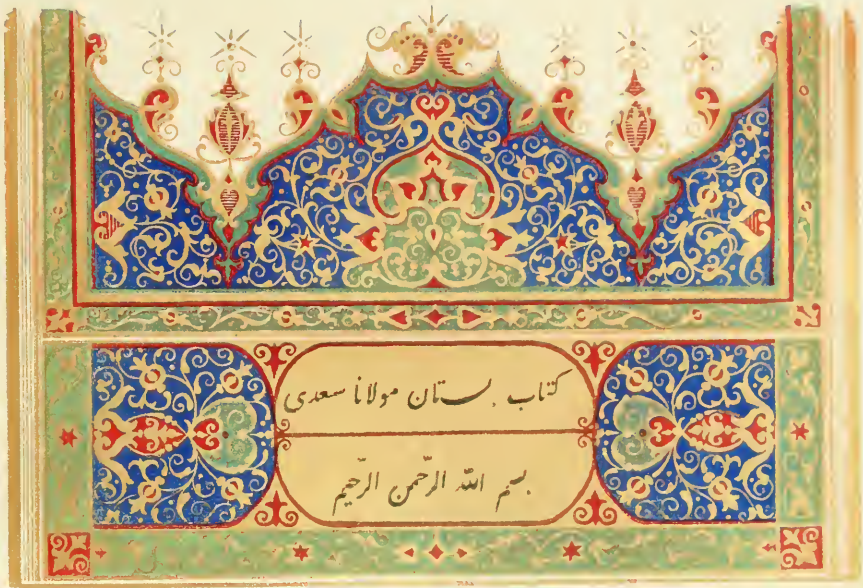 کتاب بستان مولانا سعدی
بسم الله الرّحمن الرّحیم